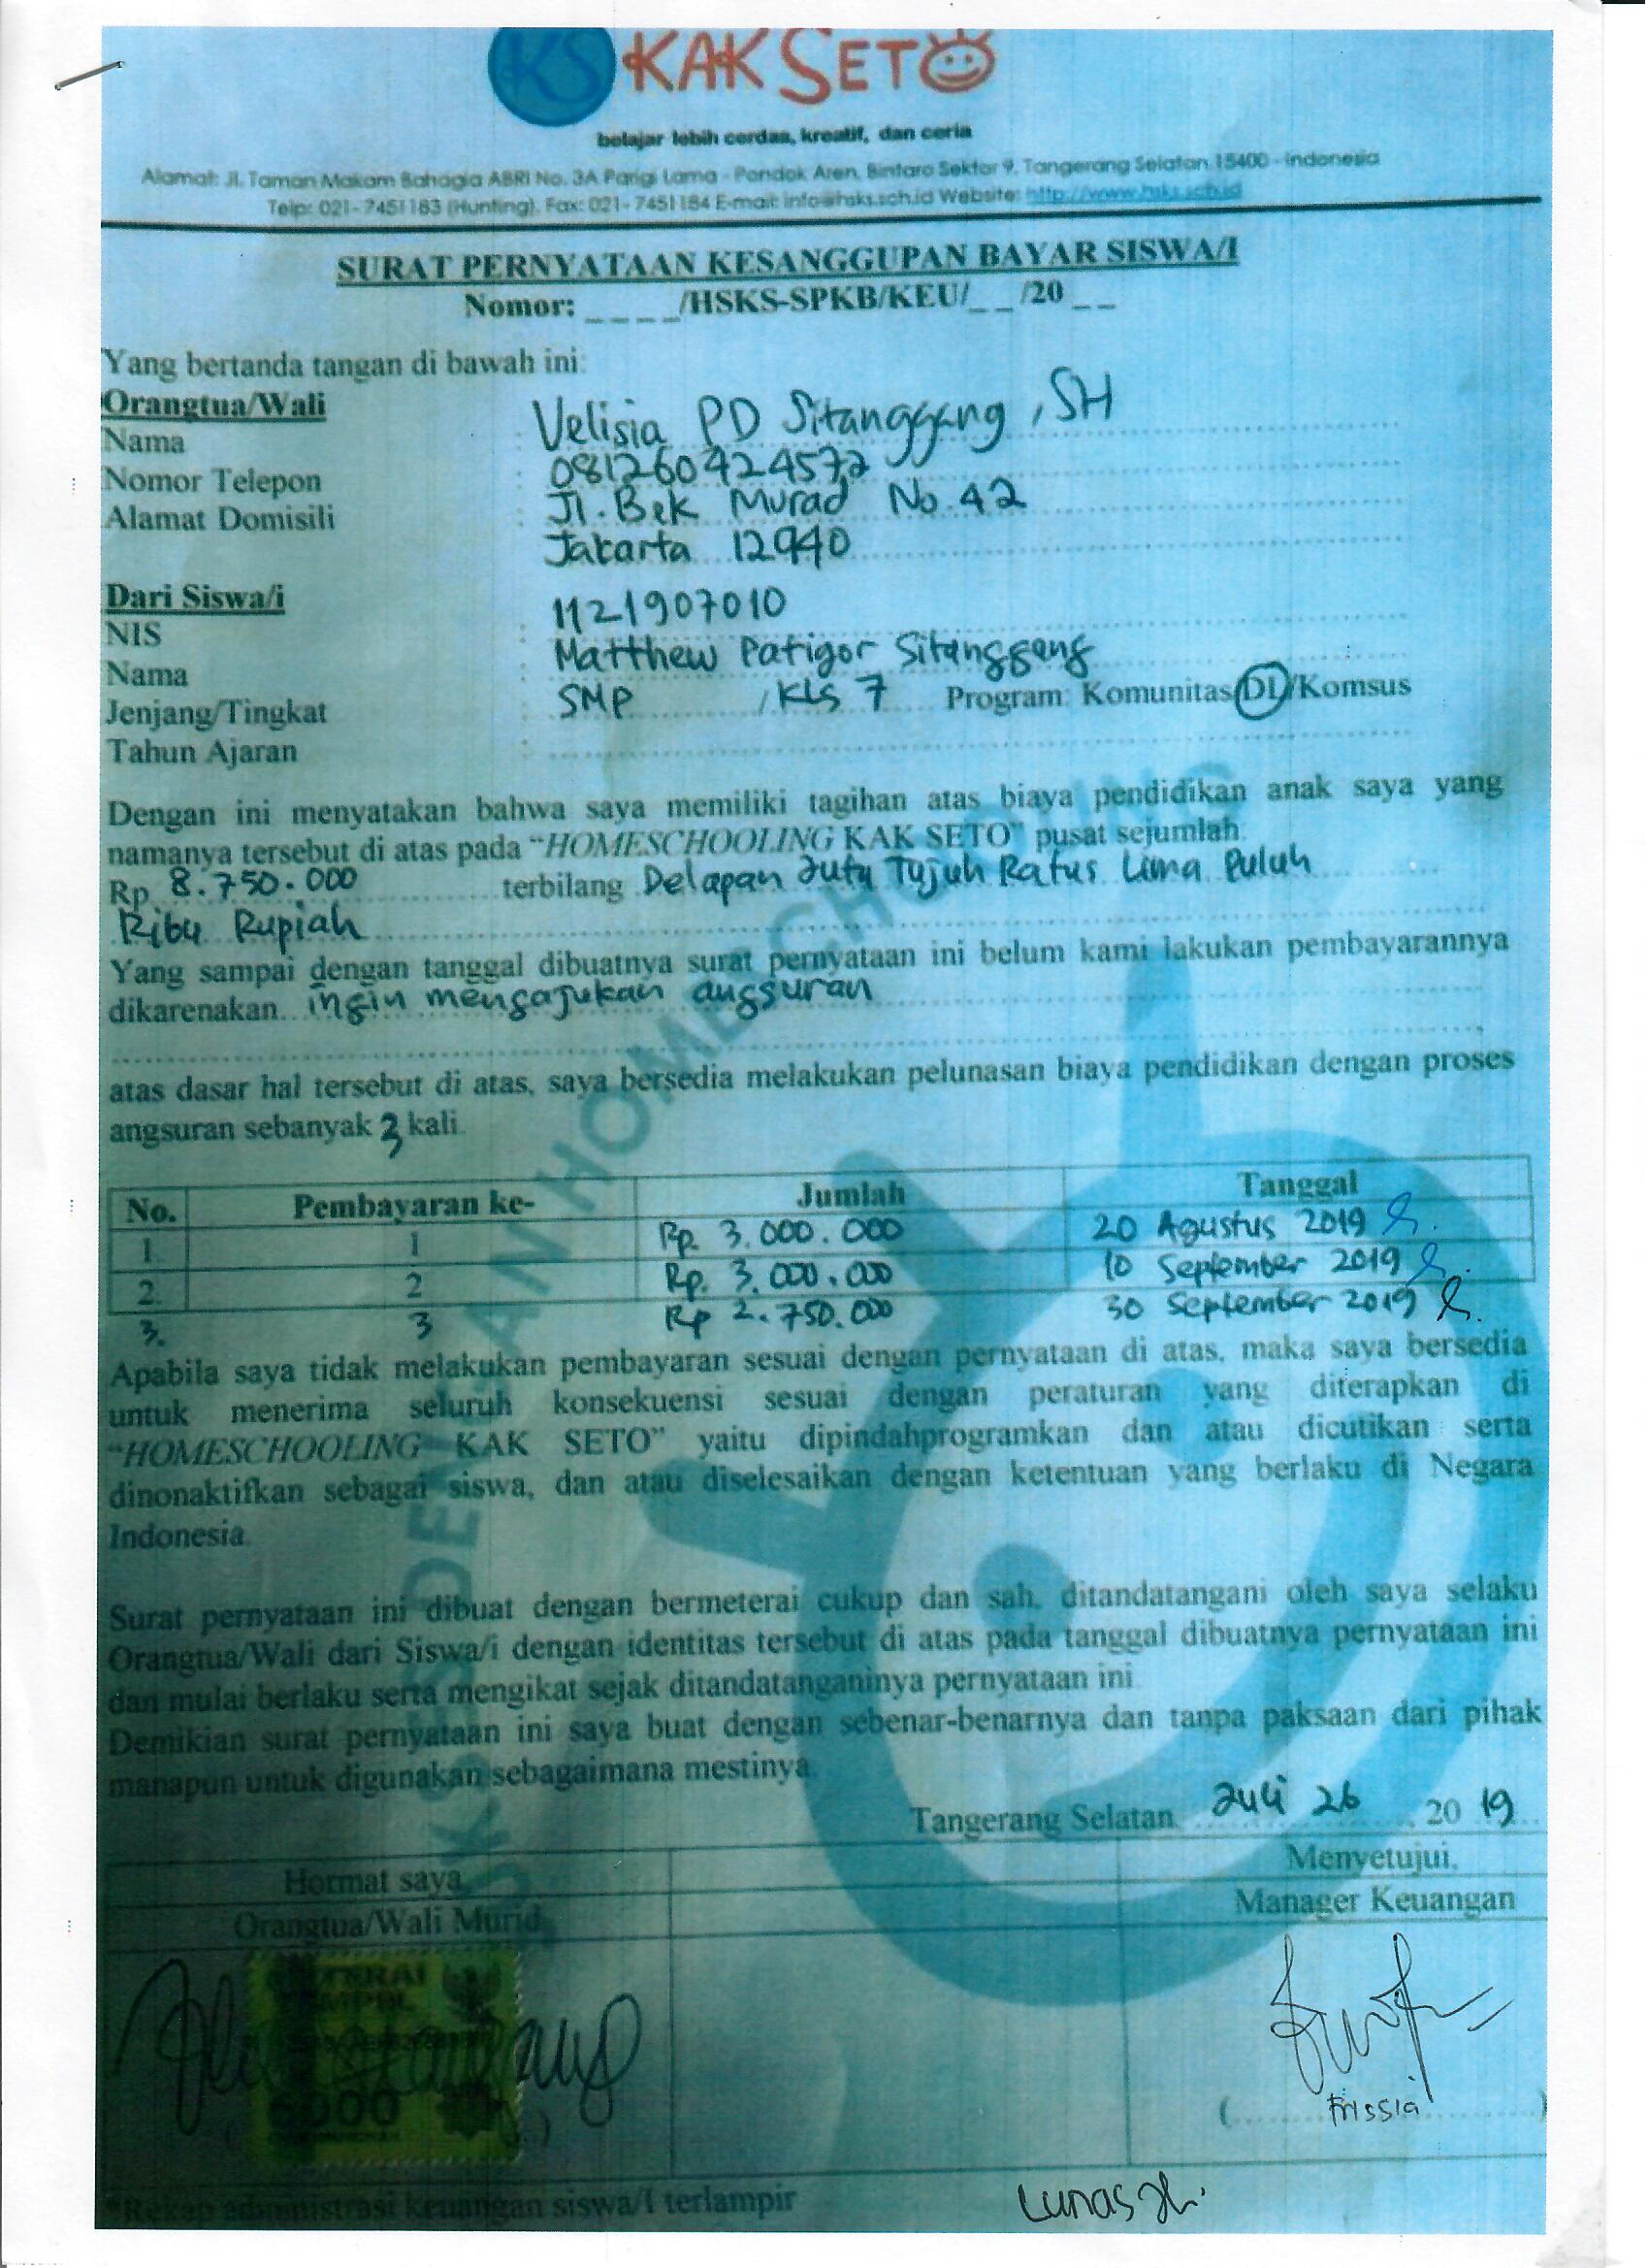 KS KAK SETO
belajar lebih cerdas, kreatif, dan ceria
Alamat: Jl. Taman Makam Bahagia ABRI No. 3A Parigi Lama - Pondok Aren, Bintaro Sektor 9, Tangerang Selatan 15400 - Indonesia
Telp: 021- 7451183 (Hunting), Fax: 021- 7451184 E-mail: info@hsks.sch.id Website: http://www.hsks.sch.id
SURAT PERNYATAAN KESANGGUPAN BAYAR SISWA/I
Nomor: _ _ _ _/HSKS-SPKB/KEU/_ _ /20 _ _
Yang bertanda tangan di bawah ini:
Orangtua/Wali
Nama : Velisia PD Sitanggang, SH
Nomor Telepon : 081260424572
Alamat Domisili : Jl. Bek Murad No. 42
Jakarta 12940
Dari Siswa/i
NIS : 1121907010
Nama : Matthew Patigor Sitanggang
Jenjang/Tingkat : SMP / Kls 7 Program: Komunitas/DL/Komsus
Tahun Ajaran :
Dengan ini menyatakan bahwa saya memiliki tagihan atas biaya pendidikan anak saya yang
namanya tersebut di atas pada "HOMESCHOOLING KAK SETO" pusat sejumlah:
Rp 8.750.000 terbilang Delapan Juta Tujuh Ratus Lima Puluh
Ribu Rupiah
Yang sampai dengan tanggal dibuatnya surat pernyataan ini belum kami lakukan pembayarannya
dikarenakan ingin mengajukan angsuran
atas dasar hal tersebut di atas, saya bersedia melakukan pelunasan biaya pendidikan dengan proses
angsuran sebanyak 3 kali.
No. Pembayaran ke- Jumlah Tanggal
1. 1 Rp. 3.000.000 20 Agustus 2019
2. 2 Rp. 3.000.000 10 September 2019
3. 3 Rp 2.750.000 30 September 2019
Apabila saya tidak melakukan pembayaran sesuai dengan pernyataan di atas, maka saya bersedia
untuk menerima seluruh konsekuensi sesuai dengan peraturan yang diterapkan di
"HOMESCHOOLING KAK SETO" yaitu dipindahprogramkan dan atau dicutikan serta
dinonaktifkan sebagai siswa, dan atau diselesaikan dengan ketentuan yang berlaku di Negara
Indonesia.
Surat pernyataan ini dibuat dengan bermeterai cukup dan sah, ditandatangani oleh saya selaku
Orangtua/Wali dari Siswa/i dengan identitas tersebut di atas pada tanggal dibuatnya pernyataan ini
dan mulai berlaku serta mengikat sejak ditandatanganinya pernyataan ini.
Demikian surat pernyataan ini saya buat dengan sebenar-benarnya dan tanpa paksaan dari pihak
manapun untuk digunakan sebagaimana mestinya.
Tangerang Selatan, Juli 26, 20 19
Hormat saya,
Orangtua/Wali Murid
Menyetujui,
Manager Keuangan
METERAI
TEMPEL
6000
( Frissia )
*Rekap administrasi keuangan siswa/i terlampir
Lunas